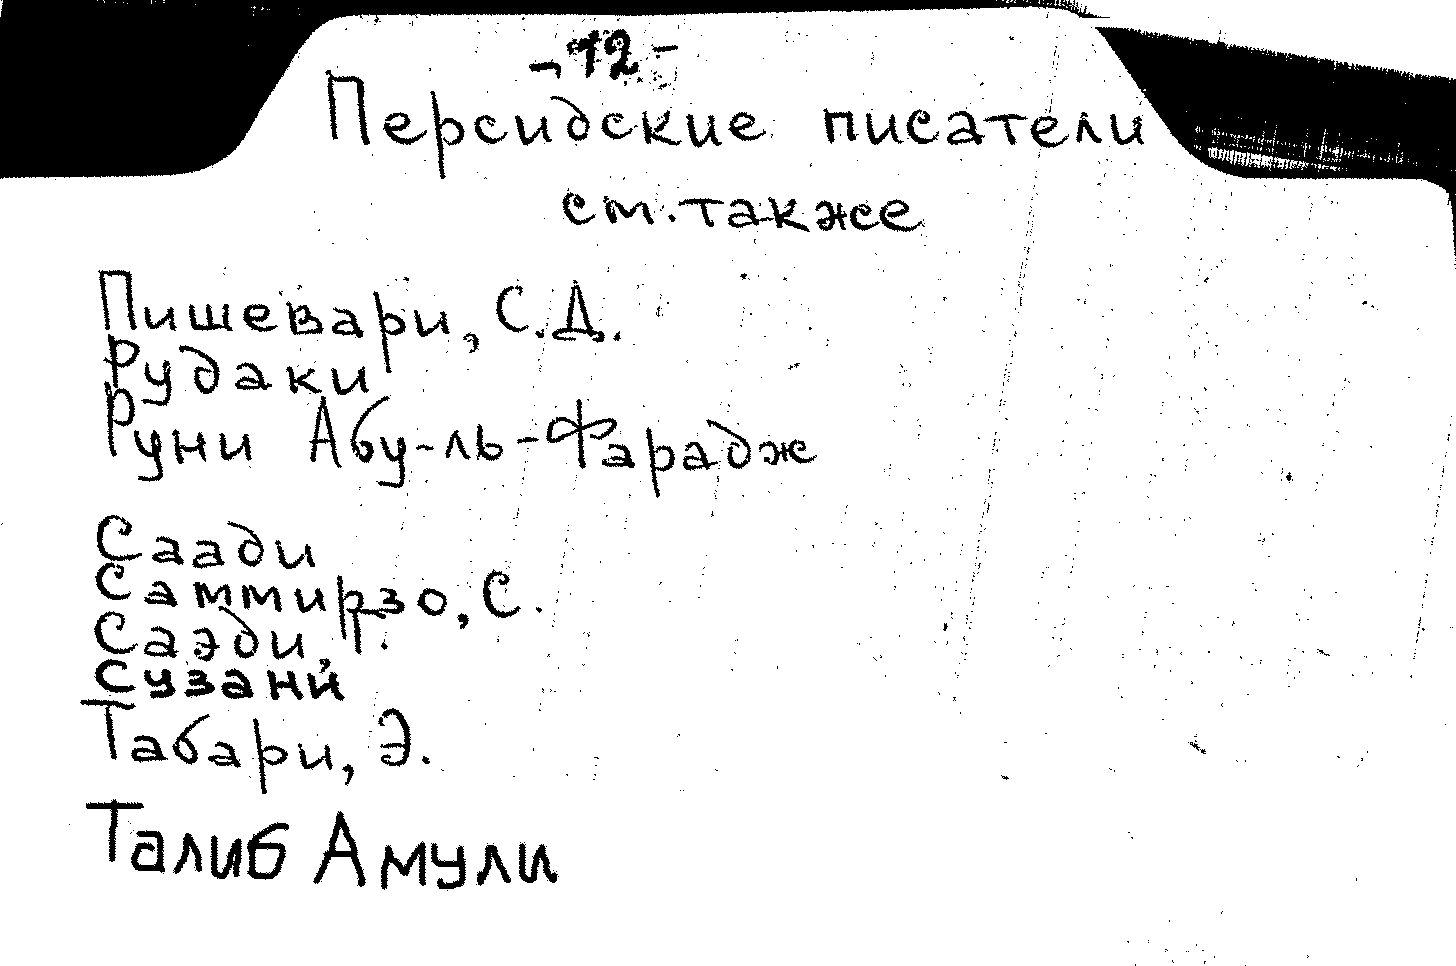 -12-
Персидские писатели
см. также
Пишевари, С.Д.
Рудаки
Руни Абу-ль-Фарадж
Саади
Саммирзо, С.
Саэди, Г.
Сузани
Табари, Э.
Талиб Амули